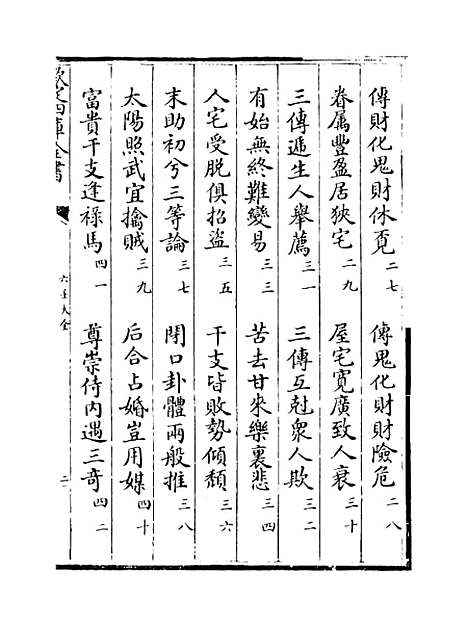 傳財化鬼財休覓二七　傳鬼化財財險危二八
眷屬豐盈居狹宅二九　屋宅寬廣致人衰三十
三傳遞生人舉薦三一　三傳互尅衆人欺三二
有始無終難變易三三　苦去甘來樂裏悲三四
人宅受脱俱招盜三五　干支皆敗勢傾頽三六
末助初兮三等論三七　閉口卦體兩般推三八
太陽照武宜擒賊三九　后合占婚豈用媒四十
富貴干支逢祿馬四一　尊崇侍内遇三竒四二
欽定四庫全書
六壬大全
二